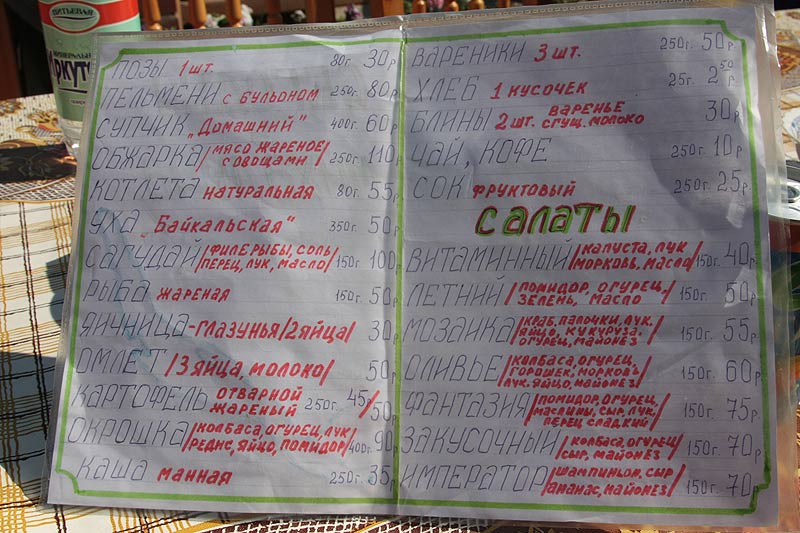 ПИТЬЕВАЯ
Иркут
ПОЗЫ 1 шт. 80г. 30р
ПЕЛЬМЕНИ с бульоном 250г. 80р
СУПЧИК „Домашний" 400г. 60р
ОБЖАРКА/мясо жареное
с овощами/ 250г. 110р
КОТЛЕТА натуральная 80г. 55р
УХА „Байкальская" 350г. 50р
САГУДАЙ/филе рыбы, соль
перец, лук, масло/ 150г. 100р
РЫБА жареная 150г. 50р
ЯИЧНИЦА-глазунья/2яйца/ 30р
ОМЛЕТ/3 яйца, молоко/ 50р
КАРТОФЕЛЬ отварной
жареный 250г. 45р/50р
ОКРОШКА/колбаса, огурец, лук
редис, яйко, помидор/ 400г. 90р
КАША манная 250г. 35р
ВАРЕНИКИ 3 шт. 250г. 50р
ХЛЕБ 1 кусочек 25г. 2 50р
БЛИНЫ 2 шт. варенье
сгущ. молоко 30р
ЧАЙ, КОФЕ 250г. 10р
СОК фруктовый 250г. 25р
САЛАТЫ
ВИТАМИННЫЙ/капуста, лук
морковь, масло/ 150г. 40р
ЛЕТНИЙ/помидор, огурец,
зелень, масло/ 150г. 50р
МОЗАИКА/краб. палочки, лук.
яйцо, кукуруза.
огурец, майонез/ 150г. 55р
ОЛИВЬЕ/колбаса, огурец,
горошек, морковь
лук, яйцо, майонез/ 150г. 60р
ФАНТАЗИЯ/помидор, огурец,
маслины, сыр, лук,
перец сладкий/ 150г. 75р
ЗАКУСОЧНЫЙ/колбаса, огурец
сыр, майонез/ 150г. 70р
ИМПЕРАТОР/шампиньон, сыр
ананас, майонез/ 150г. 70р